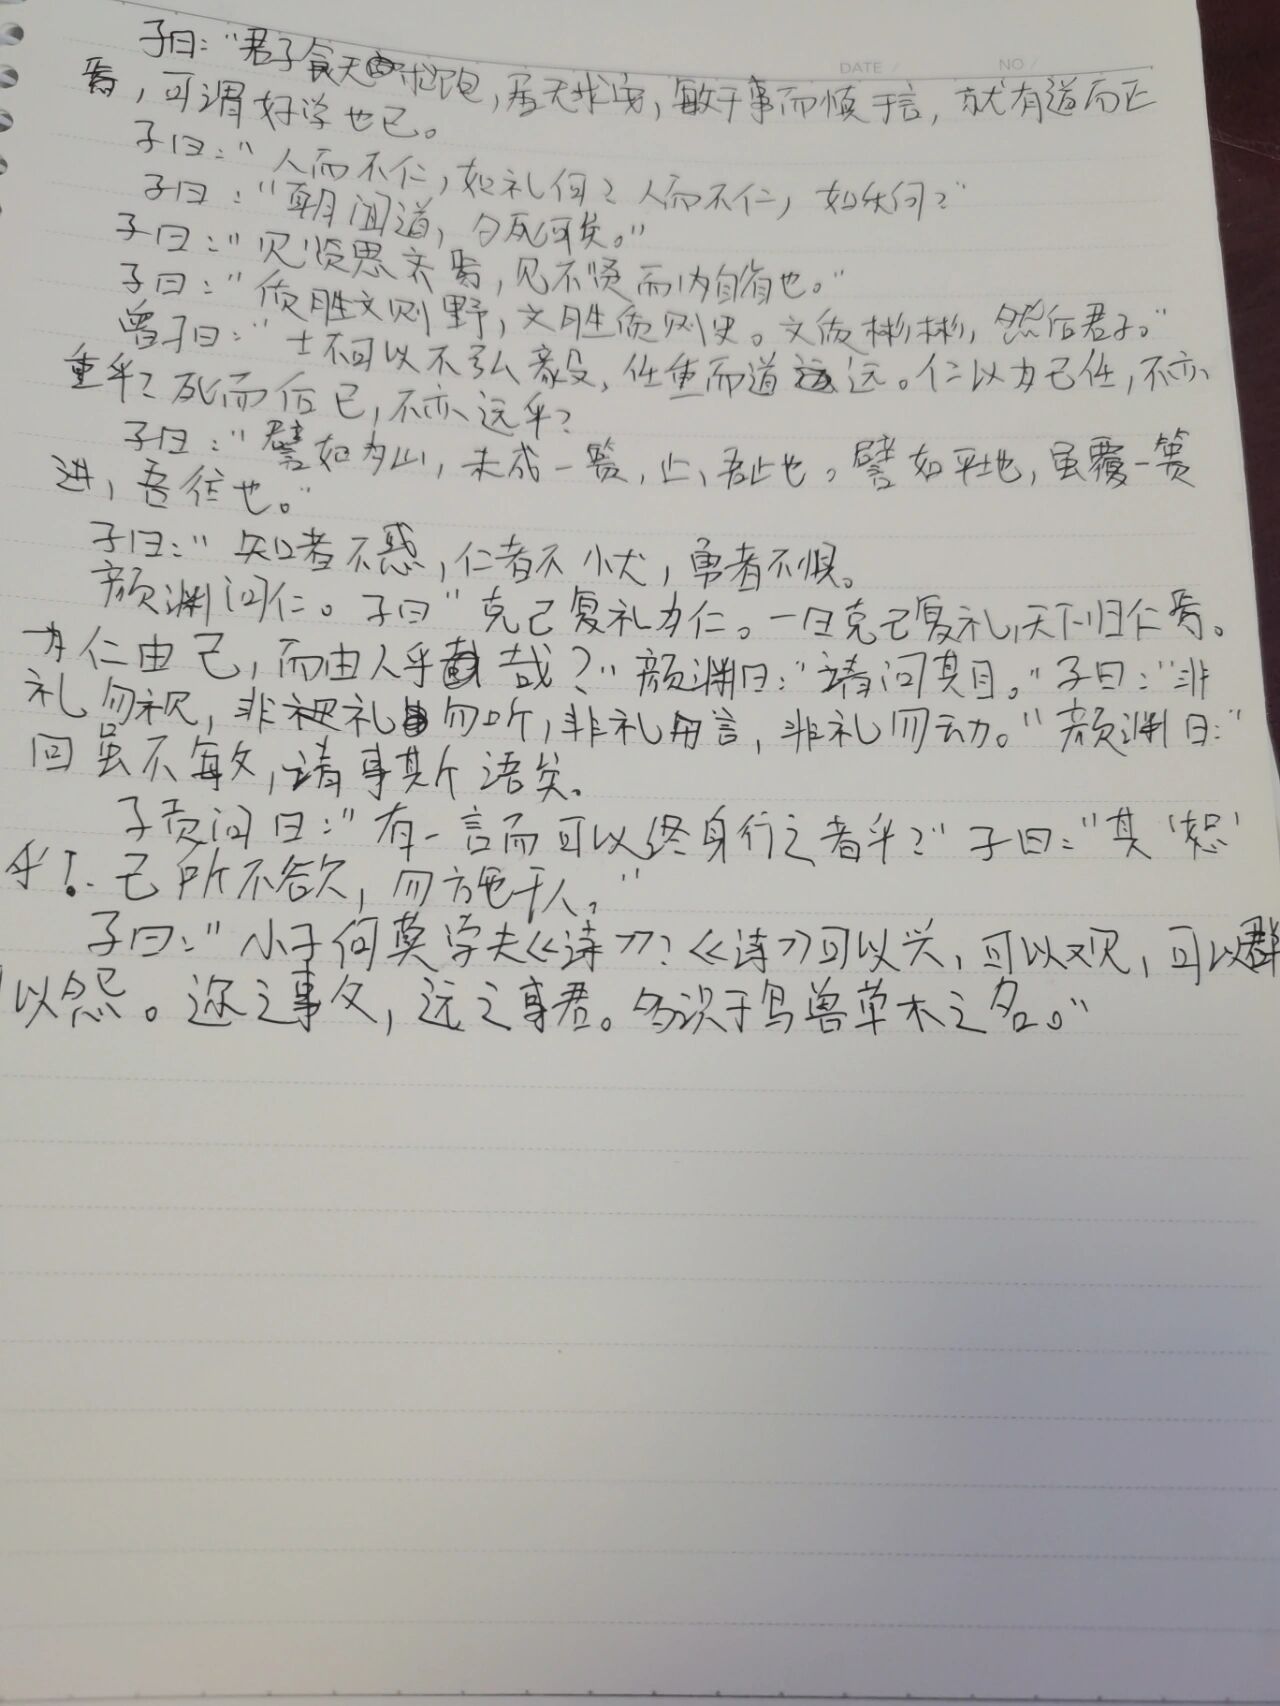 DATE / NO /
子曰：“君子食无求饱，居无求安，敏于事而慎于言，就有道而正
焉，可谓好学也已。
子曰：“人而不仁，如礼何？人而不仁，如乐何？”
子曰：“朝闻道，夕死可矣。”
子曰：“见贤思齐焉，见不贤而内自省也。”
子曰：“质胜文则野，文胜质则史。文质彬彬，然后君子。”
曾子曰：“士不可以不弘毅，任重而道远。仁以为己任，不亦
重乎？死而后已，不亦远乎？
子曰：“譬如为山，未成一篑，止，吾止也。譬如平地，虽覆一篑
进，吾往也。”
子曰：“知者不惑，仁者不忧，勇者不惧。
颜渊问仁。子曰“克己复礼为仁。一日克己复礼，天下归仁焉。
为仁由己，而由人乎哉？”颜渊曰：“请问其目。”子曰：“非
礼勿视，非礼勿听，非礼勿言，非礼勿动。”颜渊曰：“
回虽不敏，请事其斤语矣。
子贡问曰：“有一言而可以终身行之者乎？”子曰：“其‘恕’
乎！己所不欲，勿施于人。”
子曰：“小子何莫学夫《诗》？《诗》可以兴，可以观，可以群
以怨。迩之事父，远之事君。多识于鸟兽草木之名。”